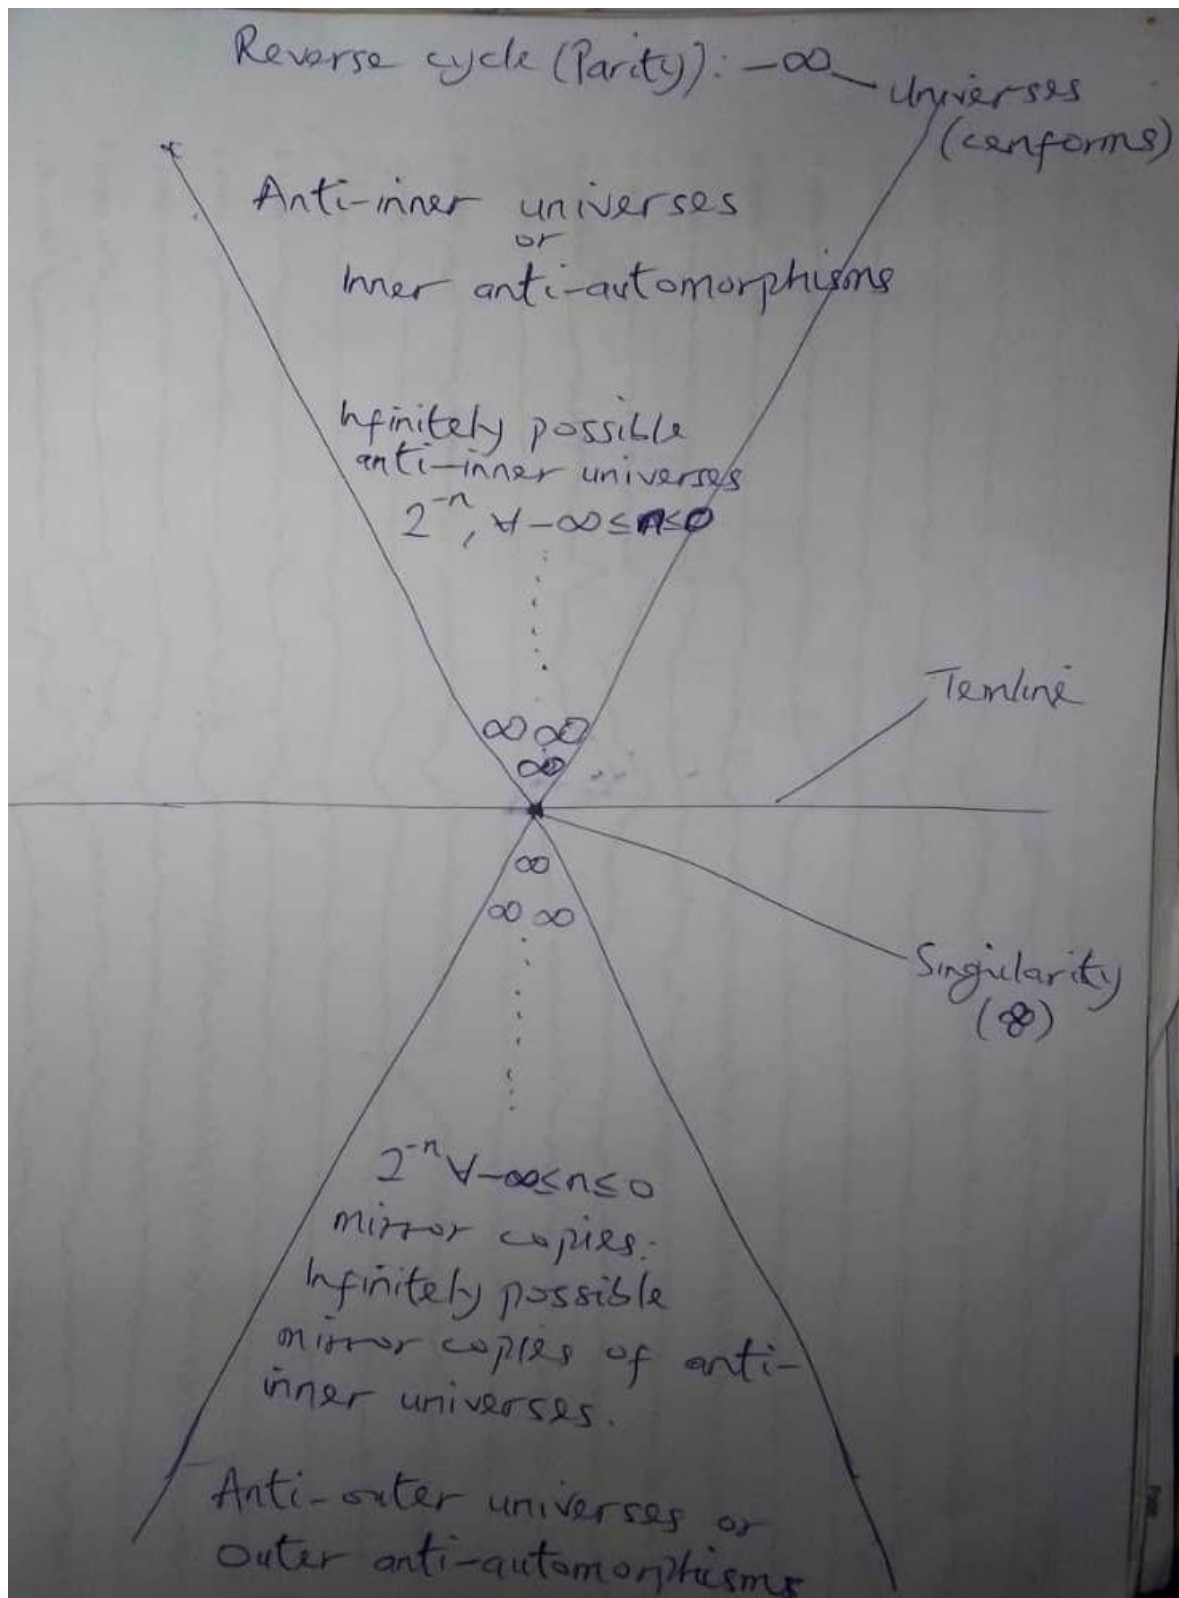 Reverse cycle (Parity): -∞
Universes
(conforms)
Anti-inner universes
or
Inner anti-automorphisms
Infinitely possible
anti-inner universes
2⁻ⁿ, ∀ -∞≤n≤0
∞ ∞
∞
Temline
∞
∞ ∞
Singularity
2⁻ⁿ ∀ -∞≤n≤0
mirror copies.
Infinitely possible
mirror copies of anti-
inner universes.
Anti-outer universes or
Outer anti-automorphisms